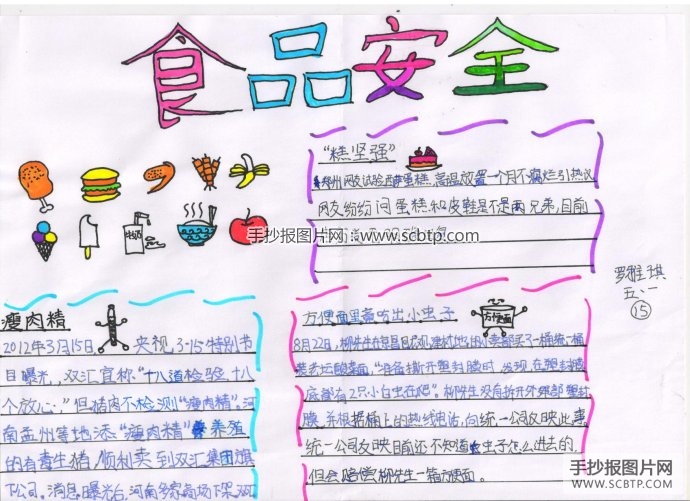 食品安全
"糕坚强"
郑州网友试验西萨蛋糕,高温放置一个月不腐烂引热议
网友纷纷问蛋糕和皮鞋是不是两兄弟,目前
手抄报图片网 - www.scbtp.com
牛奶
罗雅琪
五、一
⑮
瘦肉精
2012年3月15日, 央视3·15特别节
目曝光,双汇宣称"十八道检验、十八
个放心,"但猪肉不检测"瘦肉精"。河
南孟州等地添"瘦肉精"养殖
的有毒生猪,顺利卖到双汇集团旗
下公司。消息曝光后,河南多家商场下架双
方便面里竟吃出小虫子
方便面
8月22日,柳先生在
装老坛酸菜面,"准备撕开塑封膜时,发现,在塑封膜
底部有2只小白虫在爬"。柳先生没有拆开外部塑封
膜,并根据桶上的热线电话,向统一公司反映此事
统一公司反映目前还不知道虫子怎么进去的,
但会赔偿柳先生一箱方便面。
手抄报图片网
WWW.SCBTP.COM